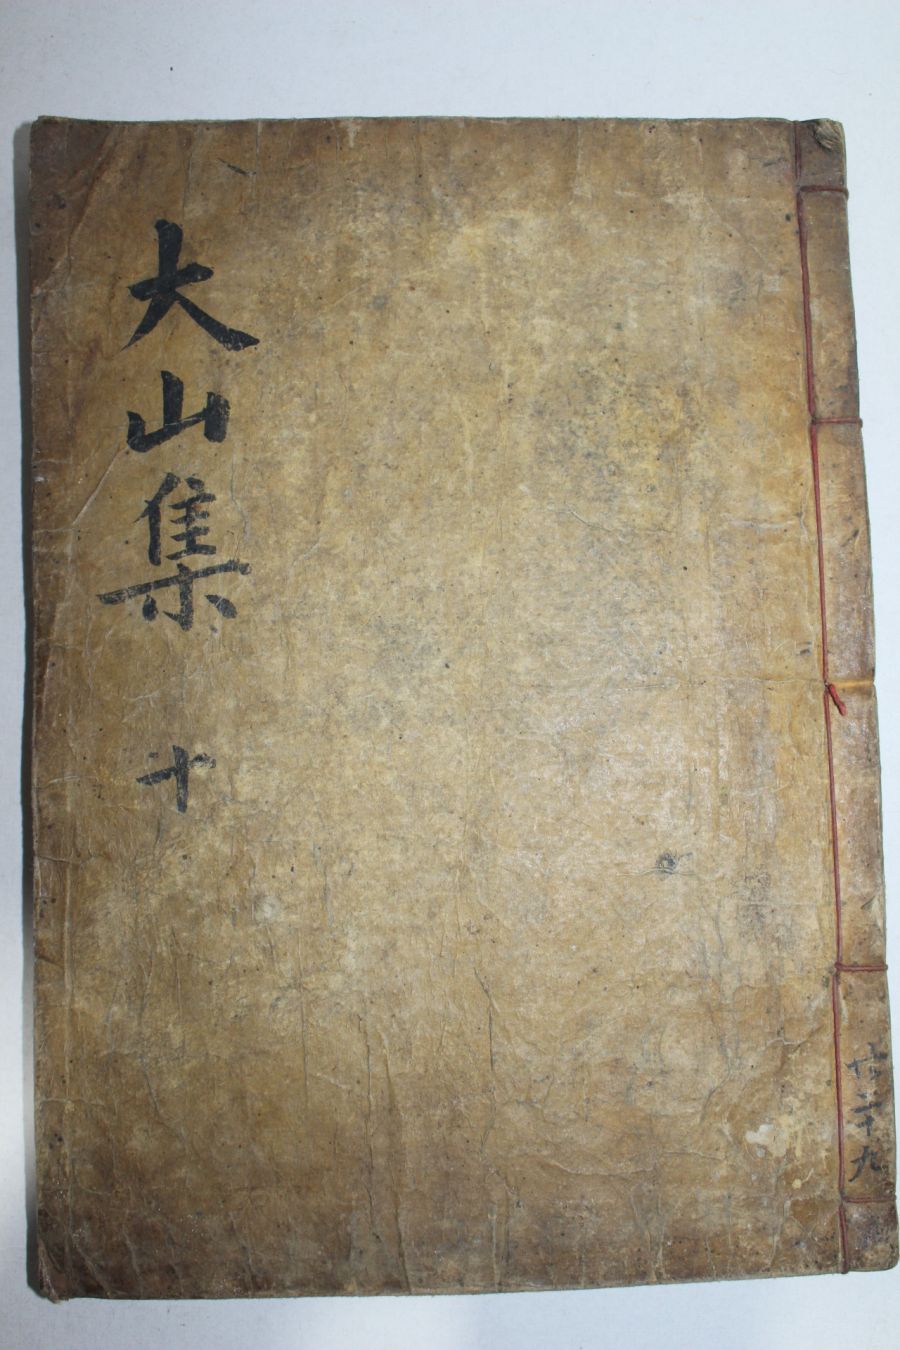 大山集 十
共十九